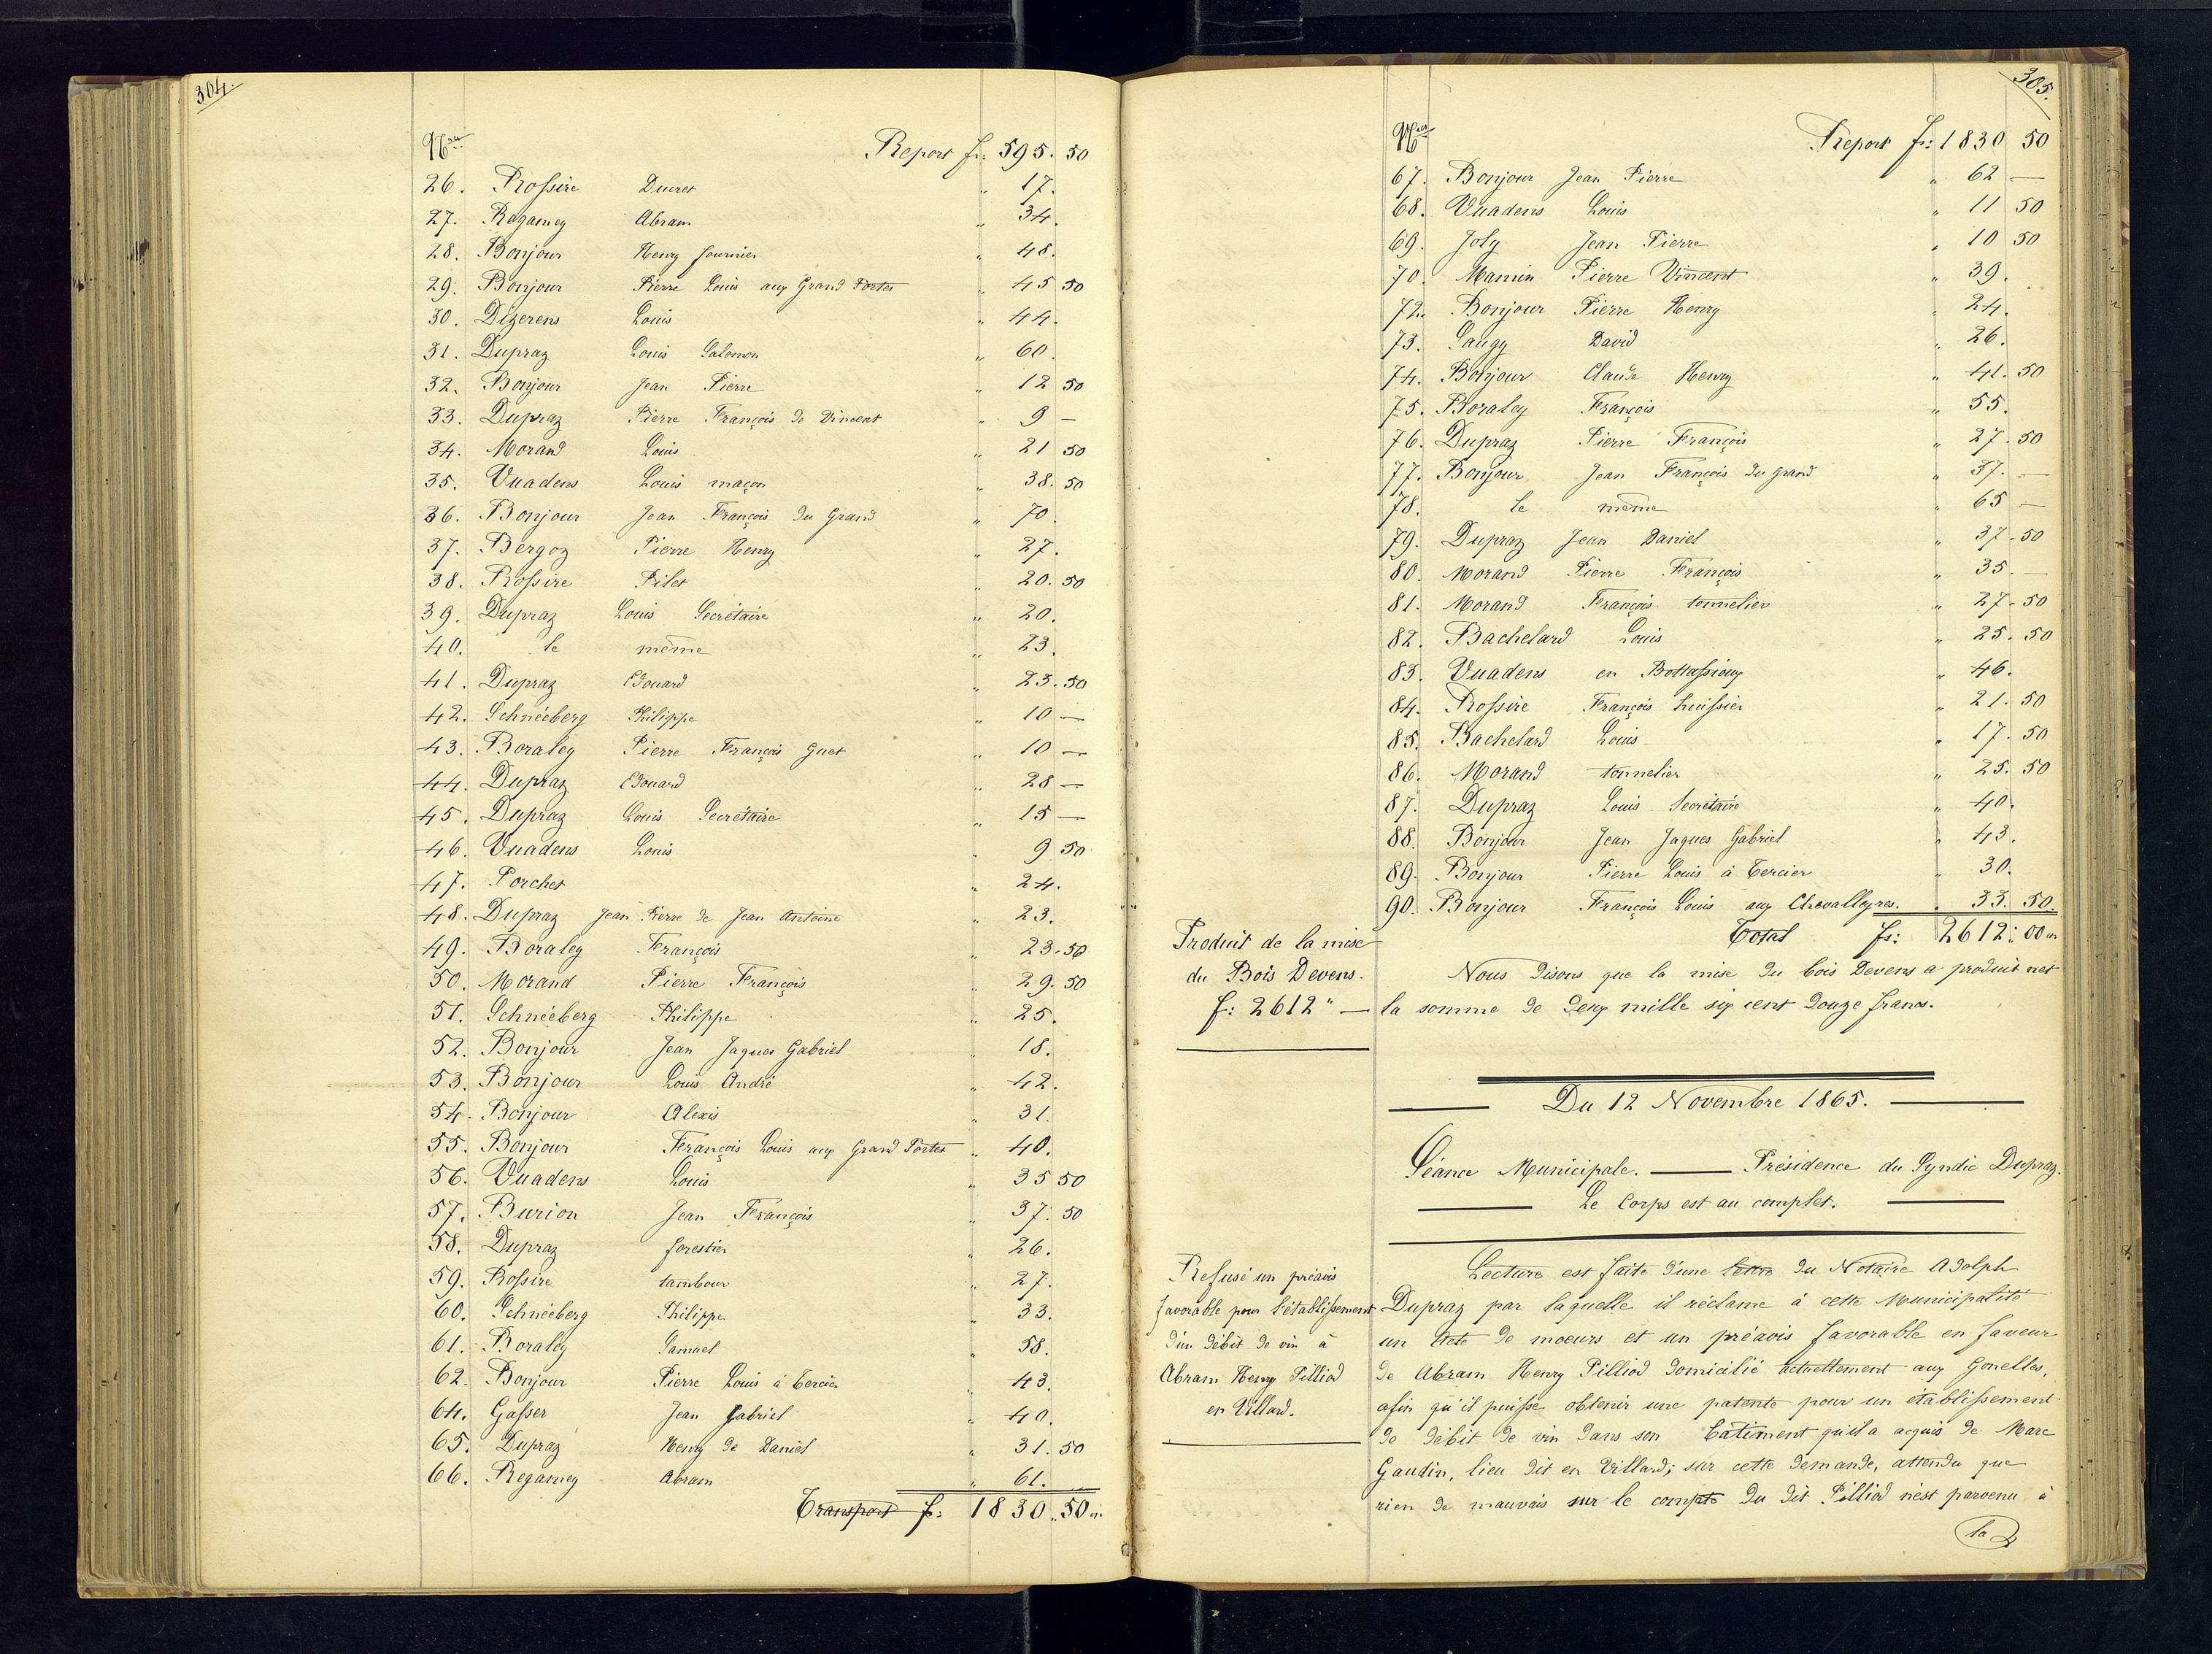 304.
Nos Report fr: 595. 50
26. Rossire Ducret " 17.
27. Regamey Abram " 34.
28. Bonjour Henry fournier " 48.
29. Bonjour Pierre Louis aux Grand Portes " 45 50
30. Dizerens Louis " 44.
31. Dupraz Louis Salomon " 60.
32. Bonjour Jean Pierre " 12 50
33. Dupraz Pierre François de Vincent " 9 —
34. Morand Louis " 21 50
35. Vuadens Louis maçon " 38. 50
36. Bonjour Jean François du Grand " 70.
37. Bergoz Pierre Henry " 27.
38. Rossire Pilet " 20. 50
39. Dupraz Louis Secrétaire " 20.
40. le même " 23.
41. Dupraz Edouard " 23. 50
42. Schnéeberg Philippe " 10 —
43. Boraley Pierre François Guet " 10 —
44. Dupraz Edouard " 28 —
45. Dupraz Louis Secrétaire " 15 —
46. Vuadens Louis " 9 50
47. Porchet " 24.
48. Dupraz Jean Pierre de Jean Antoine " 23.
49. Boraley François " 23. 50
50. Morand Pierre François " 29. 50
51. Schnéeberg Philippe " 25.
52. Bonjour Jean Jaques Gabriel " 18.
53. Bonjour Louis André " 42.
54. Bonjour Alexis " 31.
55. Bonjour François Louis aux Grand Portes " 40.
56. Vuadens Louis " 35 50
57. Burion Jean François " 37. 50
58. Dupraz forestier " 26.
59. Rossire tambour " 27.
60. Schnéeberg Philippe " 33.
61. Boraley Samuel " 58.
62. Bonjour Pierre Louis à Tercier " 43.
64. Gasser Jean Gabriel " 40.
65. Dupraz Henry de Daniel " 31. 50
66. Regamey Abram " 61.
Transport fr: 1830 " 50 "
305.
Nos Report fr: 1830 50
67. Bonjour Jean Pierre " 62 —
68. Vuadens Louis " 11 50
69. Joly Jean Pierre " 10 50
70. Mamin Pierre Vincent " 39.
72. Bonjour Pierre Henry " 24.
73. Saugy David " 26.
74. Bonjour Claude Henry " 41. 50
75. Boraley François " 55.
76. Dupraz Pierre François " 27. 50
77. Bonjour Jean François du grand " 37. —
78. le même " 65 —
79. Dupraz Jean Daniel " 37. 50
80. Morand Pierre François " 35. —
81. Morand François tonnelier " 27. 50
82. Bachelard Louis " 25. 50
83. Vuadens en Bottassioux " 46.
84. Rossire François huissier " 21. 50
85. Bachelard Louis " 17. 50
86. Morand tonnelier " 25. 50
87. Dupraz Louis Secrétaire " 40.
88. Bonjour Jean Jaques Gabriel " 43.
89. Bonjour Pierre Louis à Tercier " 30.
90. Bonjour François Louis aux Chevalleyres. " 33. 50.
Total fr: 2612 " 00 "
Produit de la mise
du Bois Devens.
fr: 2612 " —
Nous disons que la mise du bois Devens a produit net
la somme de Deux mille six cent Douze francs.
Du 12 Novembre 1865.
Séance Municipale. — Présidence du Syndic Dupraz.
Le Corps est au complet.
Refusé un préavis
favorable pour l'établissement
d'un débit de vin à
Abram Henry Pilliod
en Villard.
Lecture est faite d'une lettre du Notaire Adolph
Dupraz par laquelle il réclame à cette Municipalité
un acte de moeurs et un préavis favorable en faveur
de Abram Henry Pilliod domicilié actuellement aux Gonelles,
afin qu'il puisse obtenir une patente pour un établissement
de débit de vin dans son bâtiment qu'il a acquis de Marc
Gaudin, lieu dit en Villard; sur cette demande, attendu que
rien de mauvais sur le compte du dit Pilliod n'est parvenu à
la